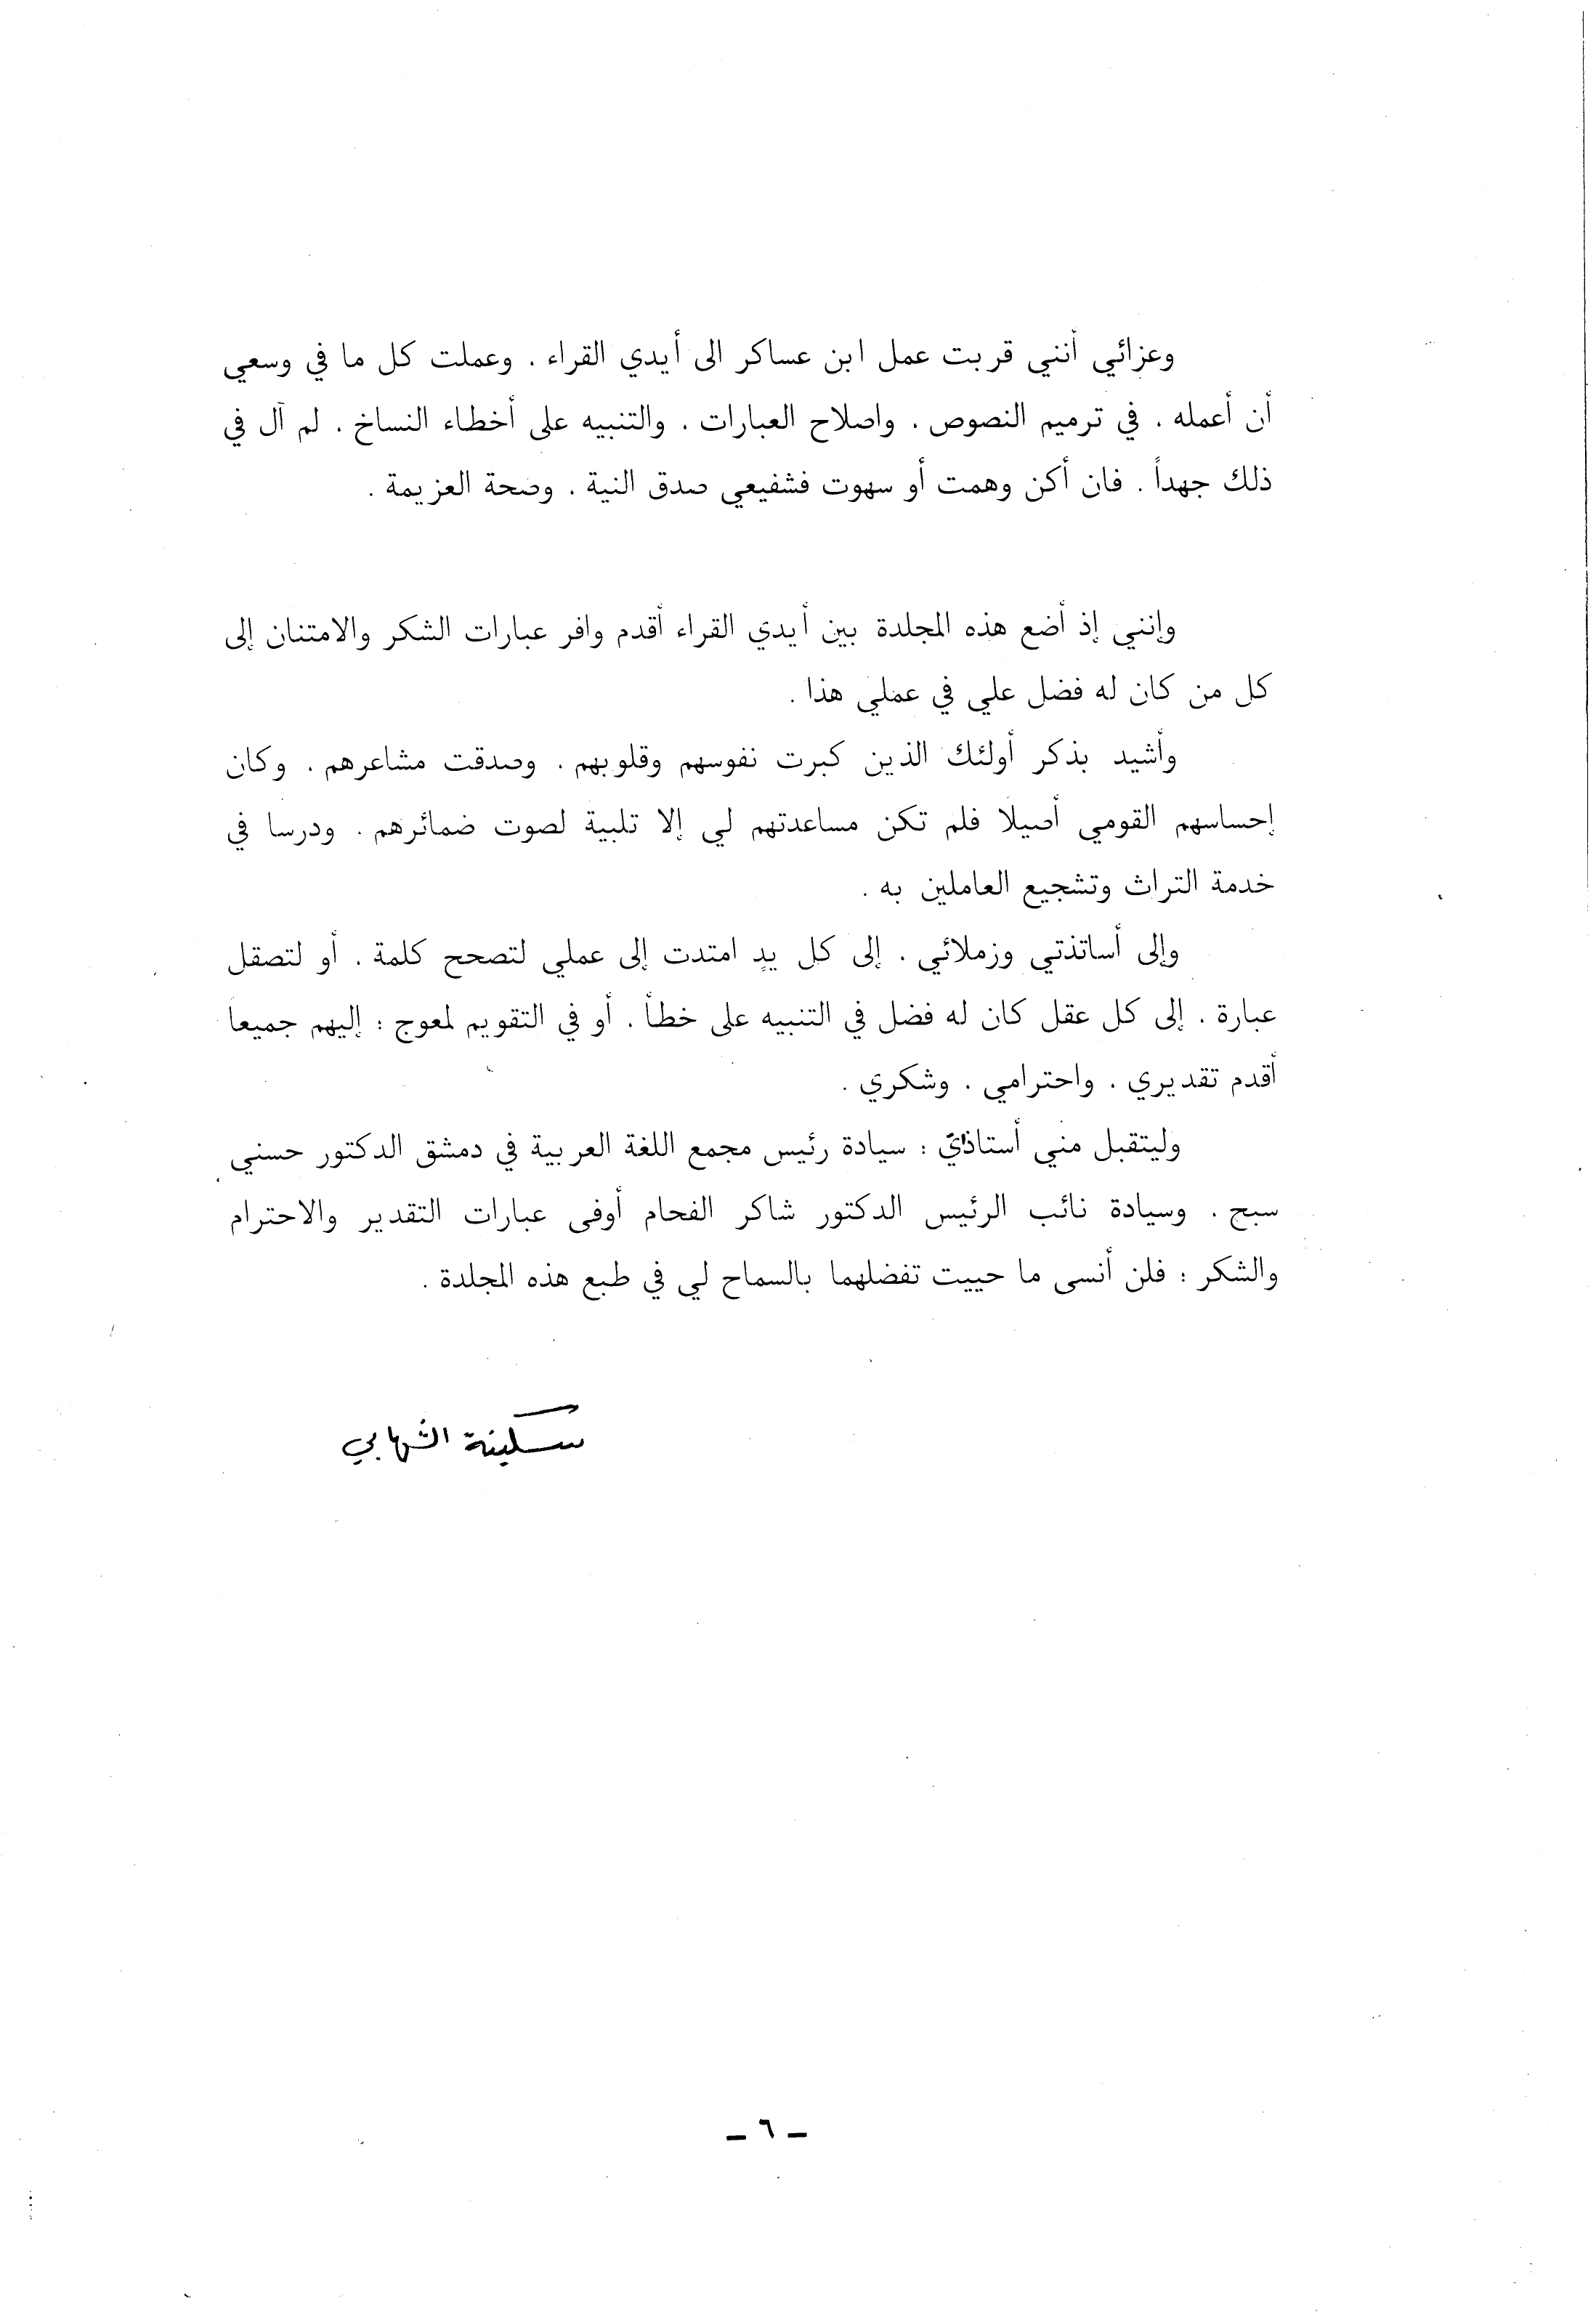 وعزائي أنني قربت عمل ابن عساكر الى أيدي القراء . وعملت كل ما في وسعي
أن أعمله . في ترميم النصوص . واصلاح العبارات . والتنبيه على أخطاء النساخ . لم آل في
ذلك جهداً . فان أكن وهمت أو سهوت فشفيعي صدق النية . وصحة العزيمة .
وإنني إذ أضع هذه المجلدة بين أيدي القراء أقدم وافر عبارات الشكر والامتنان إلى
كل من كان له فضل علي في عملي هذا .
وأشيد بذكر أولئك الذين كبرت نفوسهم وقلوبهم . وصدقت مشاعرهم . وكان
إحساسهم القومي أصيلا فلم تكن مساعدتهم لي إلا تلبية لصوت ضمائرهم . ودرسا في
خدمة التراث وتشجيع العاملين به .
وإلى أساتذتي وزملائي . إلى كل يدٍ امتدت إلى عملي لتصحح كلمة . أو لتصقل
عبارة . إلى كل عقل كان له فضل في التنبيه على خطأ . أو في التقويم لمعوج : إليهم جميعا
أقدم تقديري . واحترامي . وشكري .
وليتقبل مني أستاذيّ : سيادة رئيس مجمع اللغة العربية في دمشق الدكتور حسني
سبح . وسيادة نائب الرئيس الدكتور شاكر الفحام أوفى عبارات التقدير والاحترام
والشكر : فلن أنسى ما حييت تفضلهما بالسماح لي في طبع هذه المجلدة .
سكينة الشهابي
– ٦ –